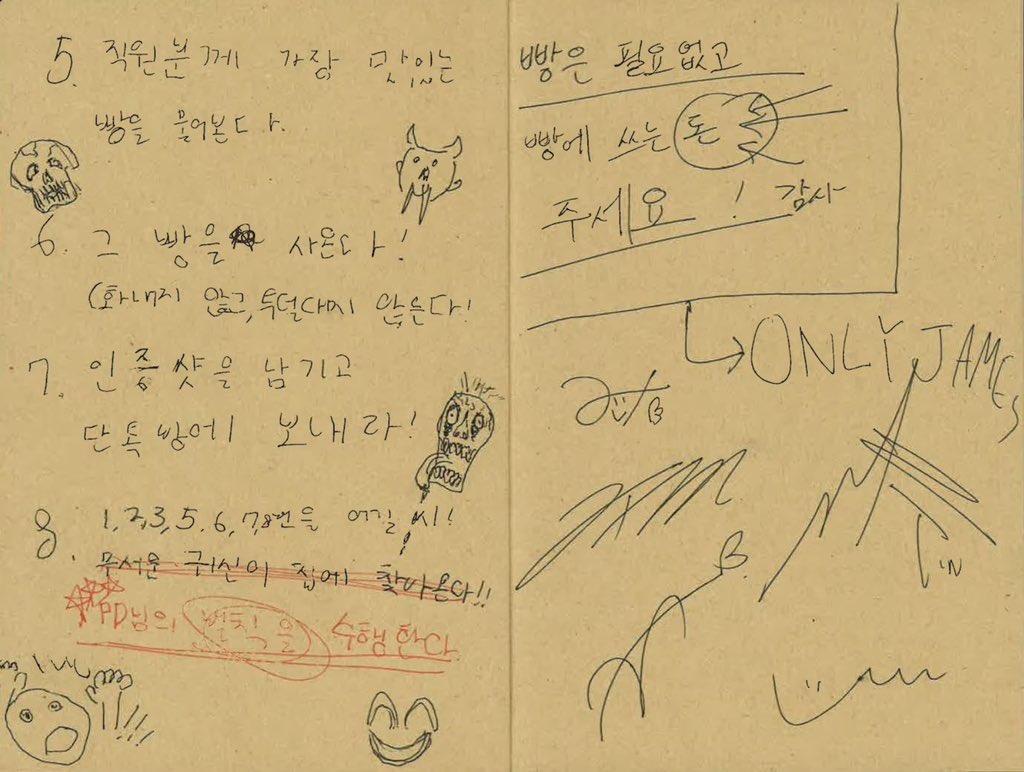 5. 직원분께 가장 맛있는
빵을 물어본다.
6. 그 빵을 사온다!
(화내지 않고, 투덜대지 않는다!
7. 인증샷을 남기고
단톡방에 보내라!
8. 1,2,3,5,6,7,8번을 어길 시!
무서운 귀신이 집에 찾아온다!!
PD님의 벌칙을 수행한다
빵은 필요없고
빵에 쓰는 돈
주세요! 감사
ONLY JAMES